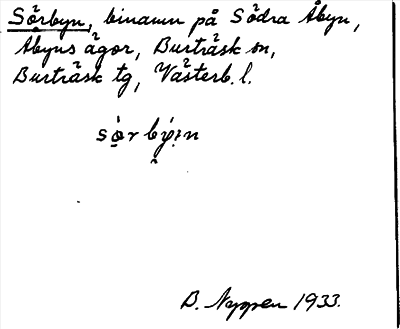 Sörbyn, binamn på Södra Åbyn,
Åbyns ägor, Burträsk sn,
Burträsk tg, Västerb. l.
sǫ̀rbýi̬n
B. Nyppen 1933.